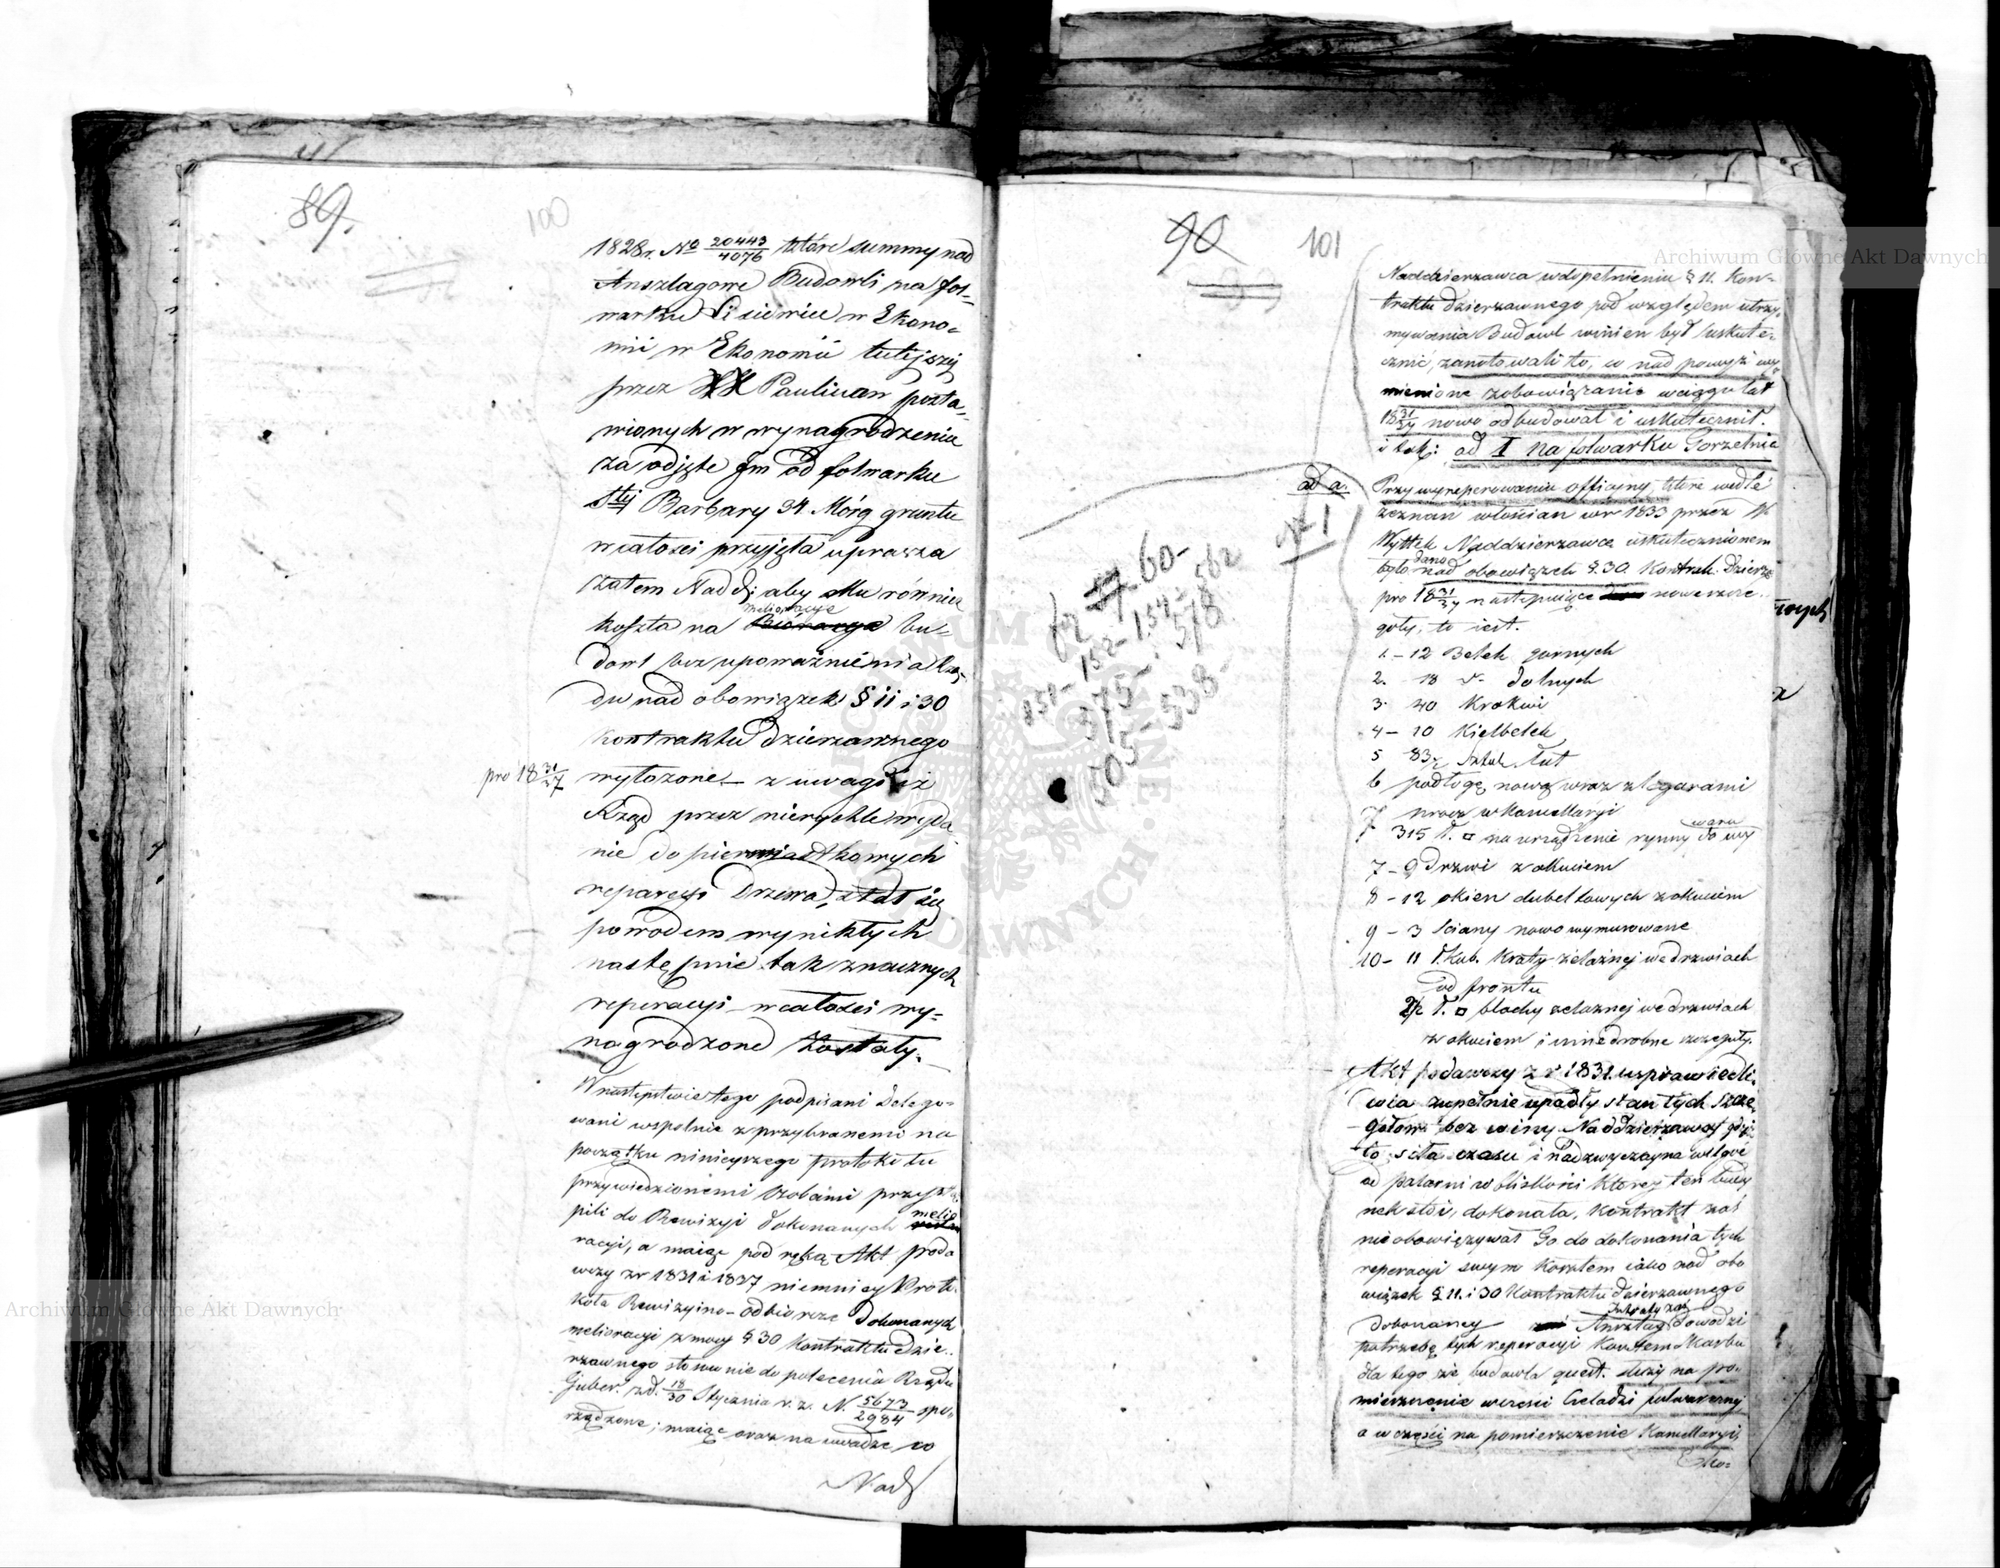 89.
100
1828r. No 20443/4076 które summy nad
Anszlagowe Budowli na fol-
warku Lisiowice w Ekono-
mii w Ekonomii tutejszej
przez XX Paulinow posta-
wionych w wynagrodzeniu
za odjęte Jm od folwarku
Stej Barbary 34 Mórg gruntu
w całości przyjęta uprasza
zatem Naddz: aby Mu również
melioracye
koszta na bu-
dowl bez upoważnienia Rzą-
du nad obowiązek § 11 i 30
kontraktu dzierzawnego
pro 18 31/37 wyłożone – z uwagi iż
Rząd przez nierychłe wyda-
nie do pierwiastkowych
reperacyi Drzewa, stał się
powodem wynikłych
następnie tak znacznych
reperacyi w całości wy-
nagrodzone zostały.
W następstwie tego podpisani Delego-
wani wspolnie z przybranemi na
początku ninieyszego protokółu
przywiedzionemi osobami przystą-
pili do Rewizyi dokonanych melio
racyi, a maiąc pod ręką Akt poda
wczy zr 1831 i 1837 niemniey Proto-
kóła Rewizyino-odbiorcze dokonanych
melioracyi z mocy § 30 Kontraktu dzie-
rzawnego stosownie do polecenia Rządu
Guber. z d. 18/30 Stycznia r. z. N. 5673/2984 spo-
rządzone; maiąc oraz na uwadze co
Nadz
90
101
Naddzierzawca w dopełnieniu § 11. Kon-
traktu dzierzawnego pod względem utrzy-
mywania Budowl winien był uskute-
cznić, zanotowali to, co nad powyż wy-
mienione zobowiązanie w ciągu lat
18 31/37 nowo odbudował i uskutecznił.
i tak: ad I na folwarku Gorzelnia
ad a.
No 1
Przy wyreperowaniu officyny, które wedle
zeznań włościan w r 1833 przez W
Wyttek Naddzierzawcę uskutecznionem
było dano nad obowiązek § 30. Kontrak. Dzierz
pro 18 31/37 następujące nowe szcze-
goły, to iest.
1. – 12 Belek gornych
2. – 18 v. dolnych
3. 40 Krokwi
4 – 10 Kielbelek
5 83/2 sztuk. łat
6 podłogę nową wraz z legarami
w Kancellaryi
7 315 ł. □ na urządzenie rynny do wy
waru
7 – 9 Drzwi z okuciem
8 – 12 okien dubeltowych z okuciem
9 – 3 ściany nowo wymurowane
10 – 11 ł. kub. Kraty żelaznej we drzwiach
od frontu
ł. □ blachy żelaznej we drzwiach
z okuciem i inne drobne szczeguły.
Akt podawczy z r 1831. usprawiedli-
wia zupełnie upadły stan tych szcze-
gołow bez winy Naddzierzawcy gdyż
to siła czasu i nadzwyczayna wilgoć
od palarni w bliskości ktorej ten budy
nek stoi, dokonała, Kontrakt zaś
nie obowięzywał Go do dokonania tych
reperacyi swym Kosztem iako nad obo
wiązek § 11. i 30 Kontraktu dzierzawnego
dokonaney Anszlag dowodzi
potrzebę tych reperacyi Kosztem Skarbu
dla tego że budowla quest. służy na po-
mieszczenie w części Czeladzi folwarczney
a w części na pomieszczenie Kancellaryi,
Eko-
62 60-
851- 152- 154- 562
375- 578
605- 538-
Archiwum Główne Akt Dawnych
Archiwum Główne Akt Dawnych